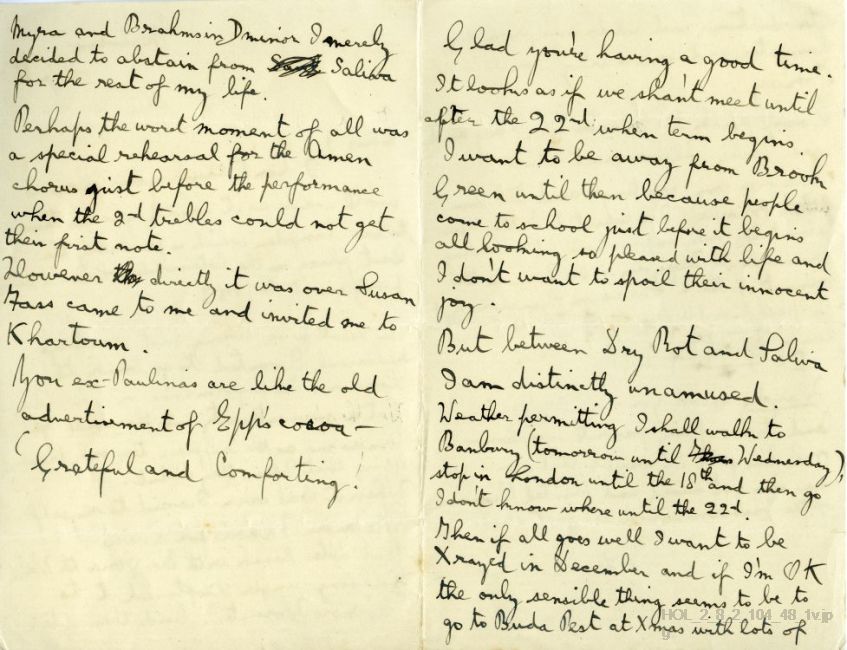 Myra and Brahms in D minor I merely
decided to abstain from Saliva
for the rest of my life.
Perhaps the worst moment of all was
a special rehearsal for the Amen
chorus just before the performance
when the 2nd trebles could not get
their first note.
However directly it was over Susan
Fass came to me and invited me to
Khartoum.
You ex-Paulinas are like the old
advertisment of Epp's cocoa —
'Grateful and Comforting!
Glad you're having a good time.
It looks as if we shan't meet until
after the 22nd when term begins.
I want to be away from Brook
Green until then because people
come to school just before it begins
all looking so pleased with life and
I don't want to spoil their innocent
joy.
But between Dry Rot and Saliva
I am distinctly unamused.
Weather permitting I shall walk to
Banbury (tomorrow until Wednesday),
stop in London until the 18th and then go
I don't know where until the 22nd.
Then if all goes well I want to be
Xrayed in December and if I'm OK
the only sensible thing seems to be to
go to Buda Pest at Xmas with lots of
HOL_2_8_2_104_48_1v.jp
g